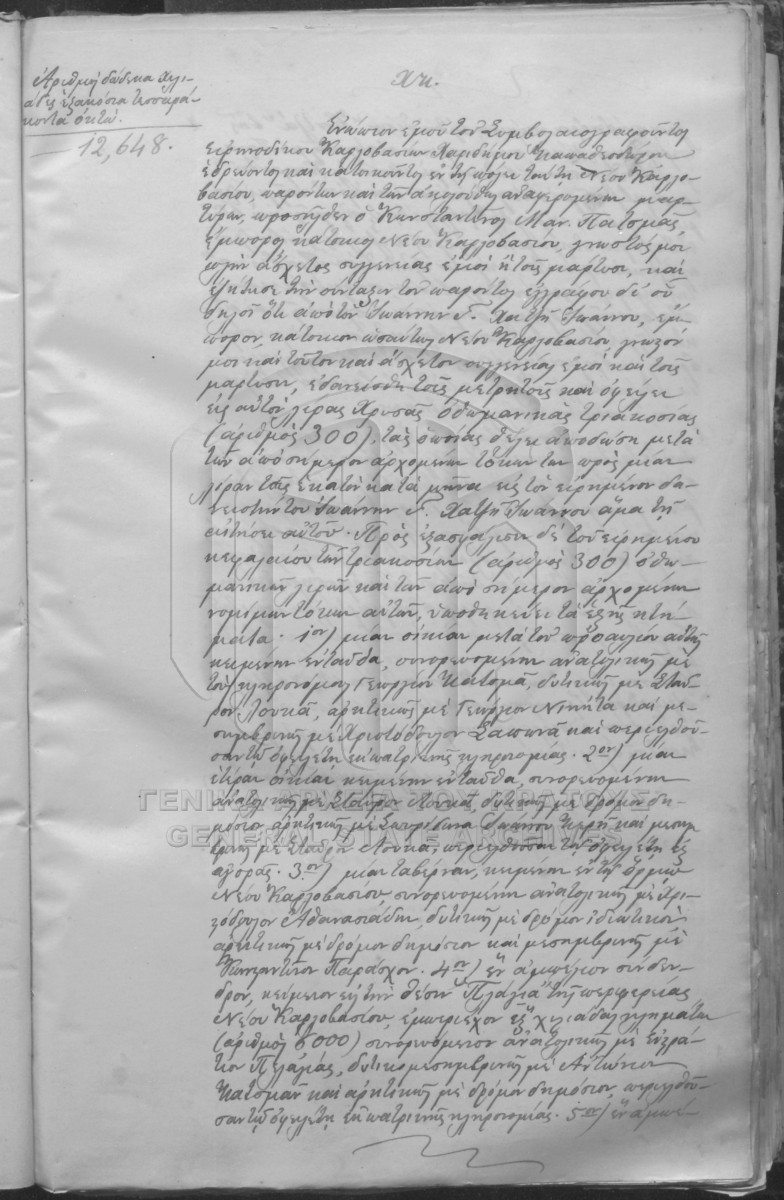 Ἀριθμὸς δώδεκα χιλι-
άδες ἑξακόσια τεσσαρά-
κοντα ὀκτώ.
12,648.
Ἐνώπιον ἐμοῦ τοῦ Συμβολαιογραφοῦντος
εἰρηνοδίκου Καρλοβασίων Χαριδήμου
ἑδρεύοντος καὶ κατοικοῦντος ἐν τῇ πόλει ταύτῃ Νέου Καρλο-
βασίου, παρόντων καὶ τῶν ἀκολούθως ἀναφερομένων μαρ-
τύρων, προσῆλθεν ὁ Κωνσταντῖνος Μαν. Πατσμᾶς,
ἔμπορος κάτοικος Νέου Καρλοβασίου, γνωστός μοι
καὶ ἄσχετος συγγενείας ἐμοὶ ἢ τοῖς μάρτυσι, καὶ
ἐζήτησε τὴν σύνταξιν τοῦ παρόντος ἐγγράφου δι' οὗ
δηλοῖ ὅτι ἀπὸ τὸν Ἰωάννην Γ. Χατζῆ Ἰωάννου, ἔμ-
πορον, κάτοικον ὡσαύτως Νέου Καρλοβασίου, γνωστόν
μοι καὶ τοῦτον καὶ ἄσχετον συγγενείας ἐμοὶ καὶ τοῖς
μάρτυσι, ἐδανείσθη τοῖς μετρητοῖς καὶ ὀφείλει
εἰς αὐτὸν λίρας χρυσᾶς ὀθωμανικὰς τριακοσίας
(ἀριθμὸς 300), τὰς ὁποίας θέλει ἀποδώσῃ μετὰ
τῶν ἀπὸ σήμερον ἀρχομένων τόκων των πρὸς μίαν
λίραν τοῖς ἑκατὸν κατὰ μῆνα εἰς τὸν εἰρημένον δα-
νειστήν του Ἰωάννην Γ. Χατζῆ Ἰωάννου ἅμα τῇ
αἰτήσει αὐτοῦ. Πρὸς ἐξασφάλισιν δὲ τοῦ εἰρημένου
κεφαλαίου τῶν τριακοσίων (ἀριθμὸς 300) ὀθω-
μανικῶν λιρῶν καὶ τῶν ἀπὸ σήμερον ἀρχομένων
νομίμων τόκων αὐτῶν, ὑποθηκεύει τὰ ἑξῆς κτή-
ματα. 1ον) μίαν οἰκίαν μετὰ τοῦ προαυλίου αὐτῆς
κειμένην ἐνταῦθα, συνορευομένην ἀνατολικῶς μὲ
τοὺς κληρονόμους Γεωργίου Κατσμᾶ, δυτικῶς μὲ Σταῦ-
ρον Λουκᾶ, ἀρκτικῶς μὲ Γεώργιον Νινήτα καὶ με-
σημβρινῶς μὲ Χριστόδουλον καὶ περιελθοῦ-
σαν τῷ ὀφειλέτῃ ἐκ πατρικῆς κληρονομίας. 2ον) μίαν
ἑτέραν οἰκίαν κειμένην ἐνταῦθα, συνορευομένην
ἀνατολικῶς μὲ Σταῦρον Λουκᾶ, δυτικῶς μὲ δρόμον δη-
μόσιον, ἀρκτικῶς μὲ Σπυρίδωνα Ἰωάννου καὶ μεσημ-
βρινῶς μὲ Σταῦρον Λουκᾶ, περιελθοῦσαν τῷ ὀφειλέτῃ ἐξ
ἀγορᾶς. 3ον) μίαν ταβέρναν, κειμένην ἐν τῷ ὅρμῳ
Νέου Καρλοβασίου, συνορευομένην ἀνατολικῶς μὲ Χρι-
στόδουλον Ἀθανασιάδην, δυτικῶς μὲ δρόμον ἰδιωτικόν
ἀρκτικῶς μὲ δρόμον δημόσιον καὶ μεσημβρινῶς μὲ
Κωνσταντῖνον Παράσχον. 4ον) ἓν ἀμπέλιον σύνδεν-
δρον, κείμενον εἰς τὴν θέσιν "Πλάγια" τῆς περιφερείας
Νέου Καρλοβασίου, ἐμπεριέχον ἓξ χιλιάδας κλήματα
(ἀριθμὸς 6000) συνορευόμενον ἀνατολικῶς μὲ Εὐστρά-
τιον δυτικομεσημβρινῶς μὲ Ἀντώνιον
Κατσμᾶν καὶ ἀρκτικῶς μὲ δρόμον δημόσιον, περιελθοῦ-
σαν τῷ ὀφειλέτῃ ἐκ πατρικῆς κληρονομίας. 5ον) ἓν ἀμπέ-
ΓΕΝΙΚΑ ΑΡΧΕΙΑ ΤΟΥ ΚΡΑΤΟΥΣ
GENERAL STATE ARCHIVES